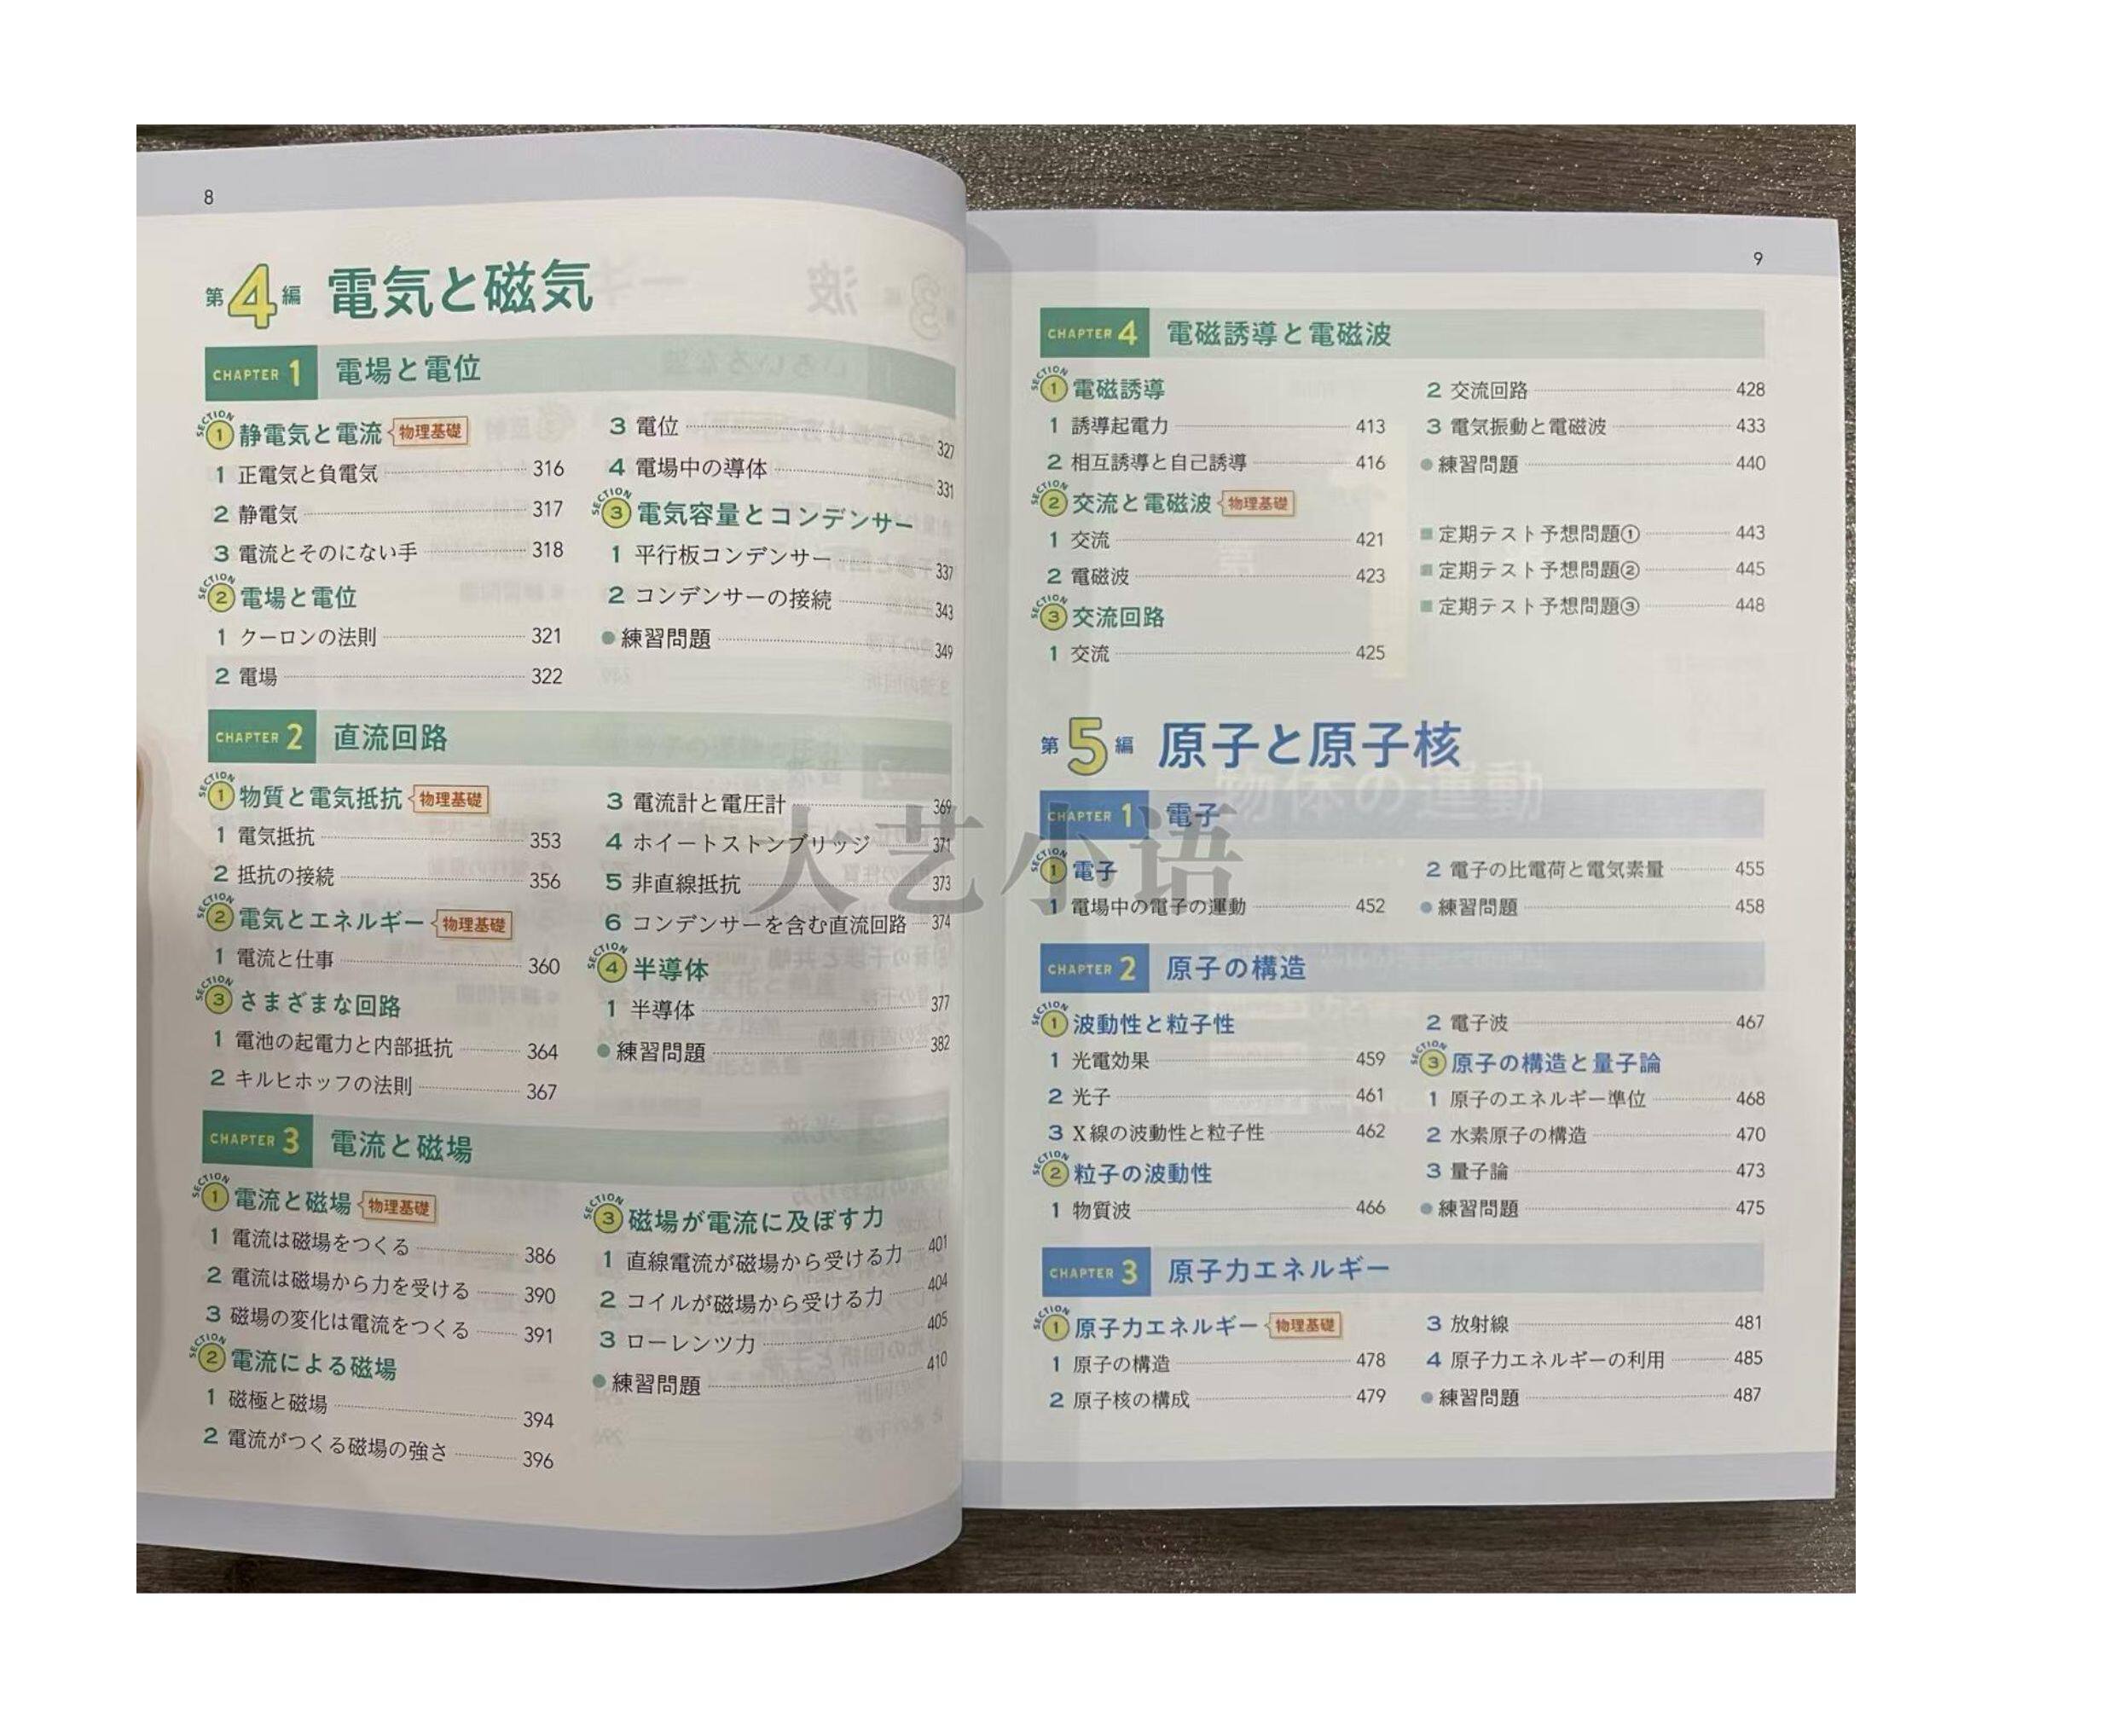 8
第4編 電気と磁気
CHAPTER 1 電場と電位
SECTION 1 静電気と電流 物理基礎
1 正電気と負電気 316
2 静電気 317
3 電流とそのにない手 318
SECTION 2 電場と電位
1 クーロンの法則 321
2 電場 322
3 電位 327
4 電場中の導体 331
SECTION 3 電気容量とコンデンサー
1 平行板コンデンサー 337
2 コンデンサーの接続 343
●練習問題 349
CHAPTER 2 直流回路
SECTION 1 物質と電気抵抗 物理基礎
1 電気抵抗 353
2 抵抗の接続 356
SECTION 2 電気とエネルギー 物理基礎
1 電流と仕事 360
SECTION 3 さまざまな回路
1 電池の起電力と内部抵抗 364
2 キルヒホッフの法則 367
3 電流計と電圧計 369
4 ホイートストンブリッジ 371
5 非直線抵抗 373
6 コンデンサーを含む直流回路 374
SECTION 4 半導体
1 半導体 377
●練習問題 382
CHAPTER 3 電流と磁場
SECTION 1 電流と磁場 物理基礎
1 電流は磁場をつくる 386
2 電流は磁場から力を受ける 390
3 磁場の変化は電流をつくる 391
SECTION 2 電流による磁場
1 磁極と磁場 394
2 電流がつくる磁場の強さ 396
SECTION 3 磁場が電流に及ぼす力
1 直線電流が磁場から受ける力 401
2 コイルが磁場から受ける力 404
3 ローレンツ力 405
●練習問題 410
9
CHAPTER 4 電磁誘導と電磁波
SECTION 1 電磁誘導
1 誘導起電力 413
2 相互誘導と自己誘導 416
SECTION 2 交流と電磁波 物理基礎
1 交流 421
2 電磁波 423
SECTION 3 交流回路
1 交流 425
2 交流回路 428
3 電気振動と電磁波 433
●練習問題 440
■定期テスト予想問題① 443
■定期テスト予想問題② 445
■定期テスト予想問題③ 448
第5編 原子と原子核
CHAPTER 1 電子
SECTION 1 電子
1 電場中の電子の運動 452
2 電子の比電荷と電気素量 455
●練習問題 458
CHAPTER 2 原子の構造
SECTION 1 波動性と粒子性
1 光電効果 459
2 光子 461
3 X線の波動性と粒子性 462
SECTION 2 粒子の波動性
1 物質波 466
2 電子波 467
SECTION 3 原子の構造と量子論
1 原子のエネルギー準位 468
2 水素原子の構造 470
3 量子論 473
●練習問題 475
CHAPTER 3 原子力エネルギー
SECTION 1 原子力エネルギー 物理基礎
1 原子の構造 478
2 原子核の構成 479
3 放射線 481
4 原子力エネルギーの利用 485
●練習問題 487
大艺小语